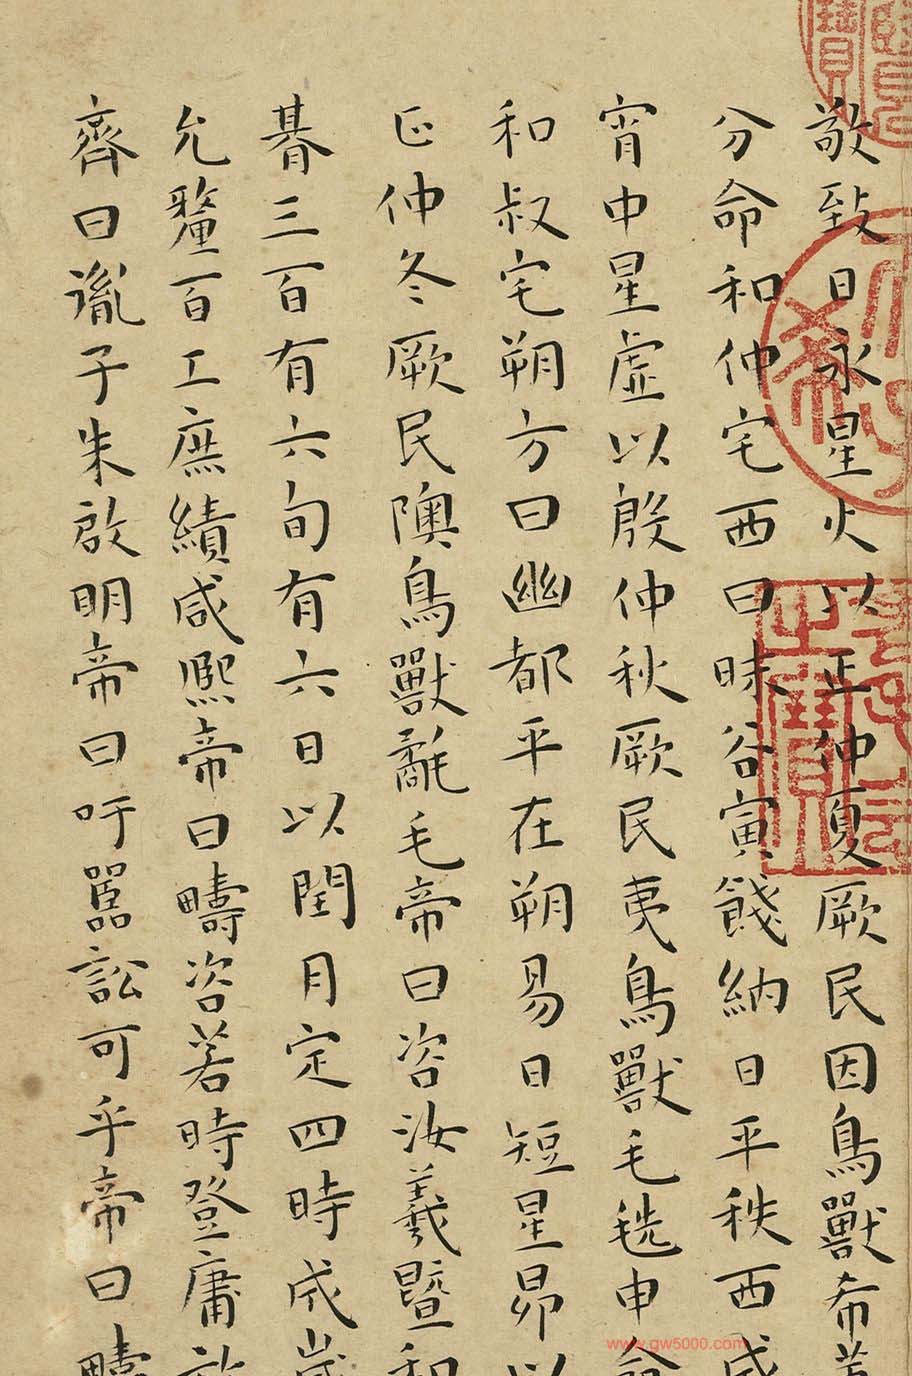 敬致日永星火以正仲夏厥民因鳥獸希革
分命和仲宅西曰昧谷寅餞納日平秩西成
宵中星虛以殷仲秋厥民夷鳥獸毛毨申命
和叔宅朔方曰幽都平在朔易日短星昴以
正仲冬厥民隩鳥獸氄毛帝曰咨汝羲暨和
朞三百有六旬有六日以閏月定四時成歲
允釐百工庶績咸熙帝曰疇咨若時登庸放
齊曰胤子朱啟明帝曰吁嚚訟可乎帝曰疇
www.gw5000.com